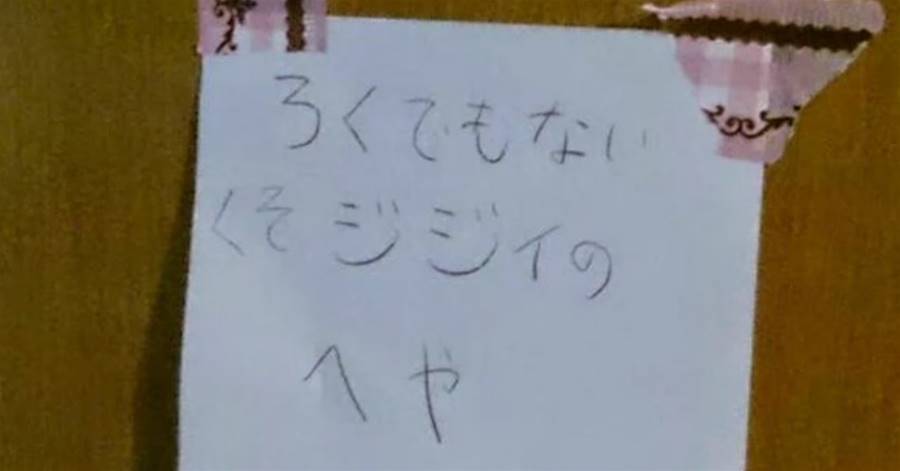 ろくでもない
くそジジイの
へや